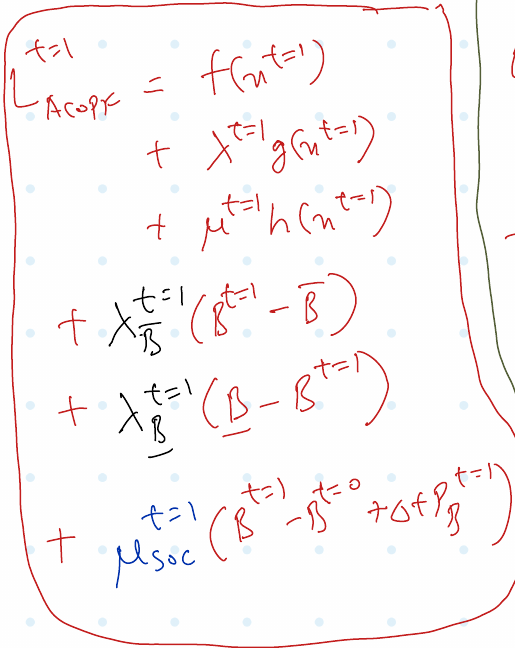 L_{ACOPF}^{t=1} = f(x^{t=1})
+ λ^{t=1} g(x^{t=1})
+ μ^{t=1} h(x^{t=1})
+ λ_{\overline{B}}^{t=1} (B^{t=1} - \overline{B})
+ λ_{\underline{B}}^{t=1} (\underline{B} - B^{t=1})
+ μ_{SOC}^{t=1} (B^{t=1} - B^{t=0} + Δt P_B^{t=1})